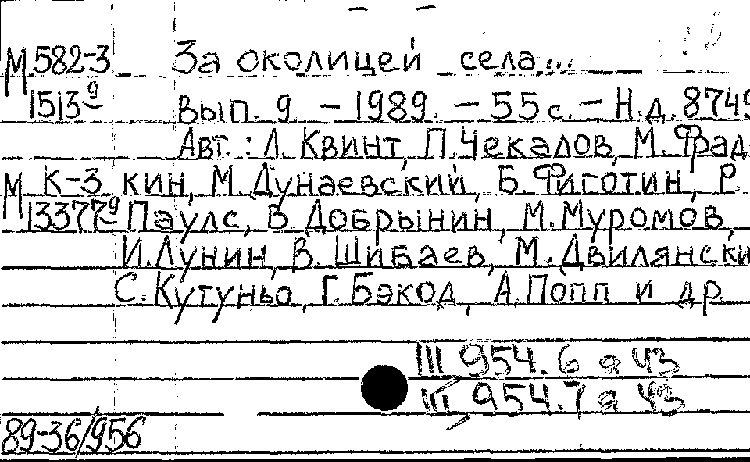 М 582-3 За околицей села...
1513⁹ Вып. 9 - 1989. - 55 с. - Н.д. 8749
Авт.: Л. Квинт, П. Чекалов, М. Фрад
М К-3 кин, М. Дунаевский, Б. Фиготин, Р.
13377⁹ Паулс, В. Добрынин, М. Муромов,
И. Лунин, В. Шибаев, М. Двилянски
С. Кутуньо, Г. Бэкод, А. Попп и др.
III 954.6 я Ч3
III 954.7 я Ч3
89-36/956